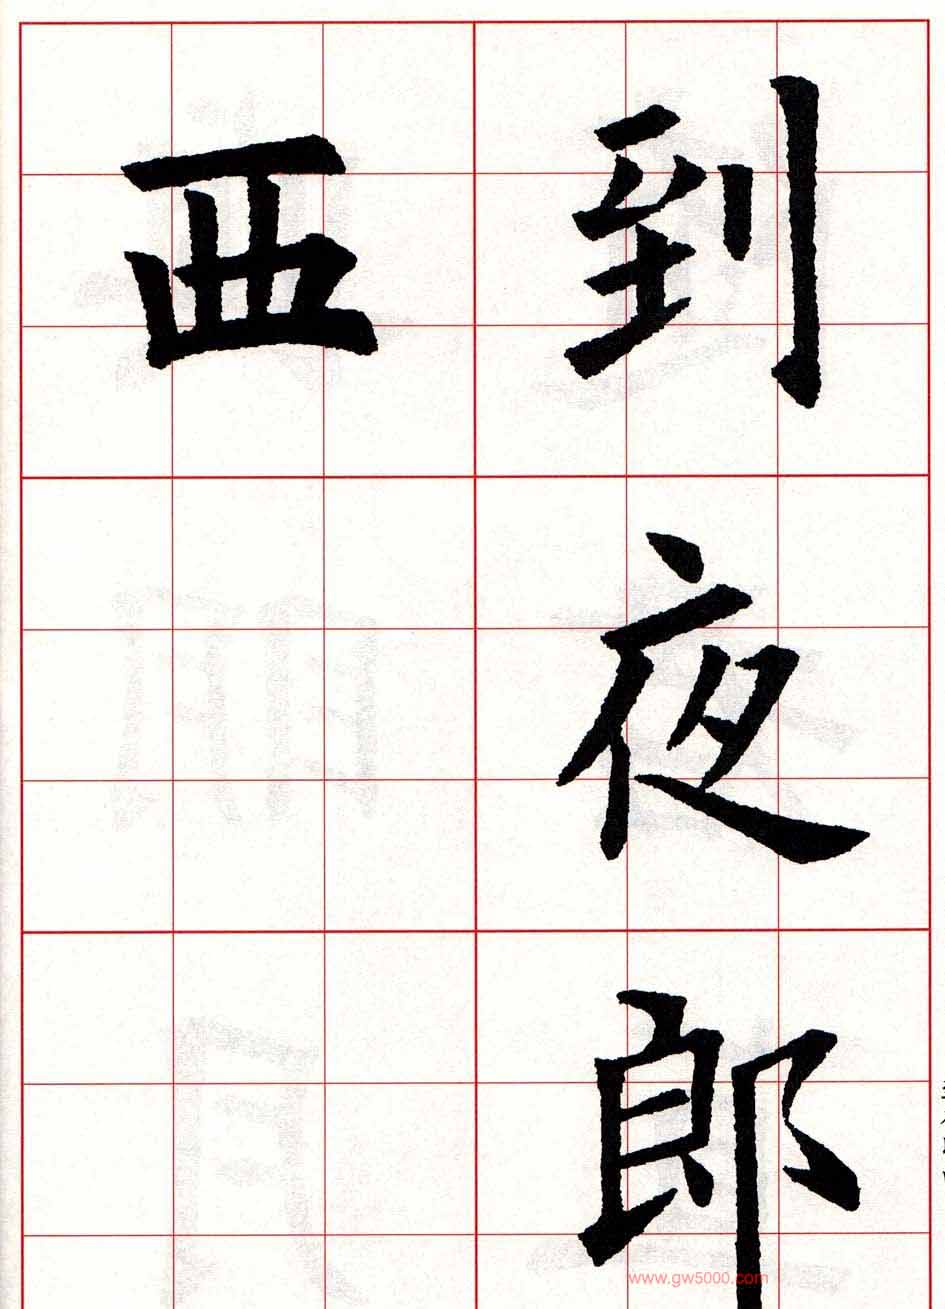 到夜郎
西
www.gw5000.com